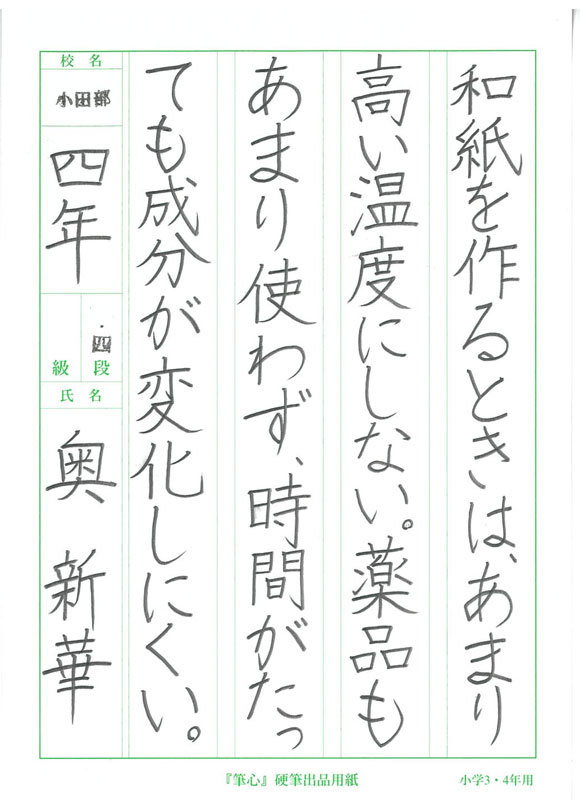 和紙を作るときは、あまり
高い温度にしない。薬品も
あまり使わず、時間がたっ
ても成分が変化しにくい。
校名
小田部
四年
・四
級 段
氏名
奥 新華
『筆心』硬筆出品用紙
小学3・4年用